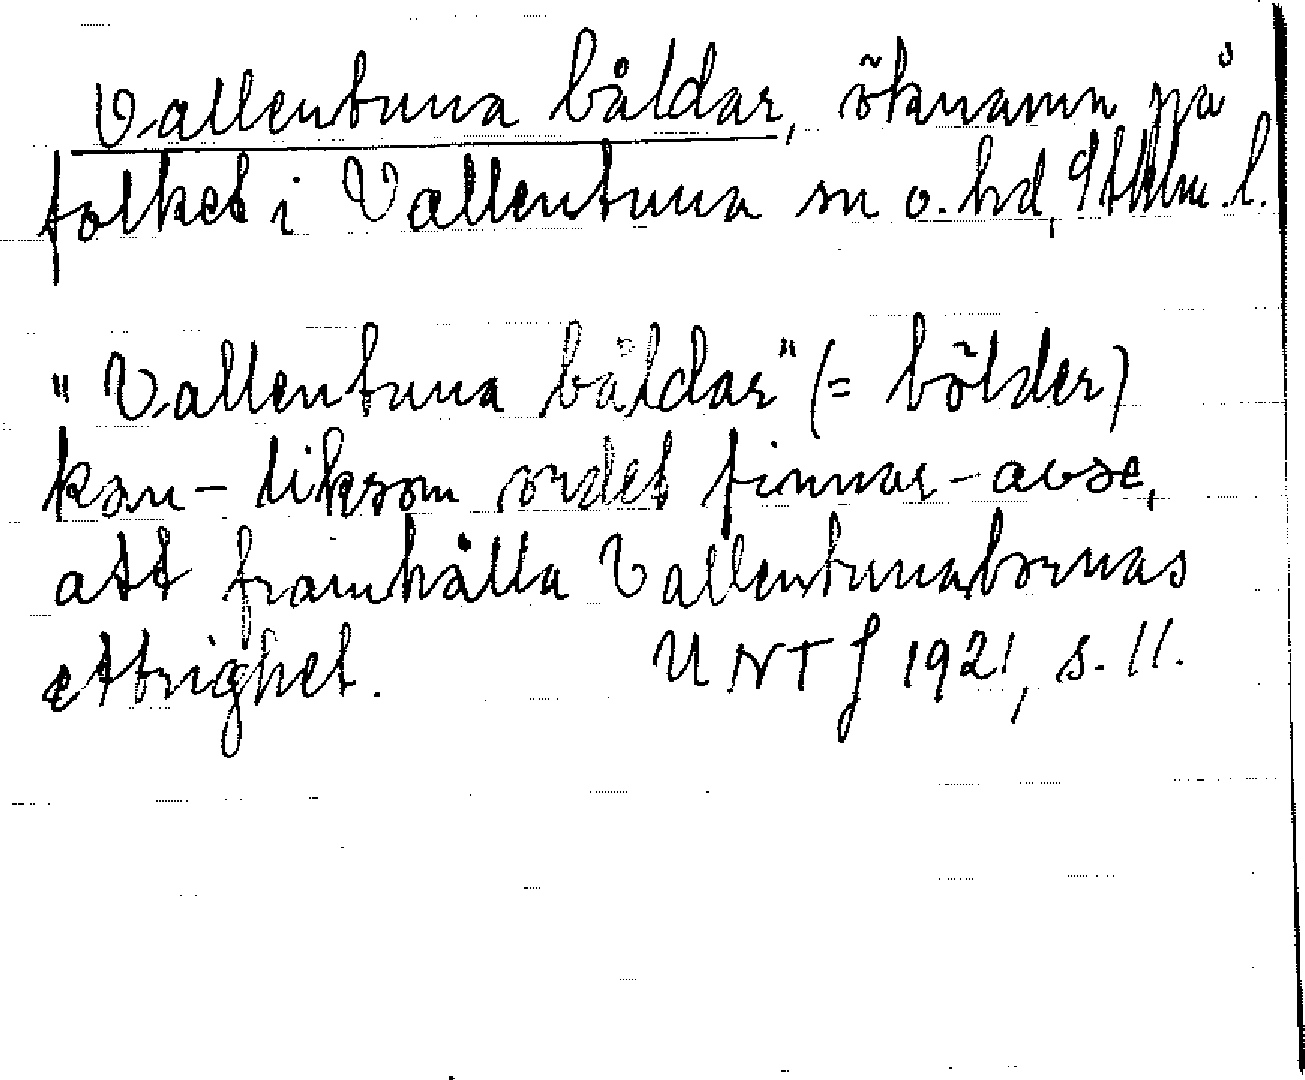 Vallentuna båldar, öknamn på
folket i Vallentuna sn o. hd, Sthlm. l.
"Vallentuna båldar" (= bölder)
kan - liksom ordet finnar - avse,
att framhålla Vallentunabornas
ettrighet. UNT J 1921, s. 11.